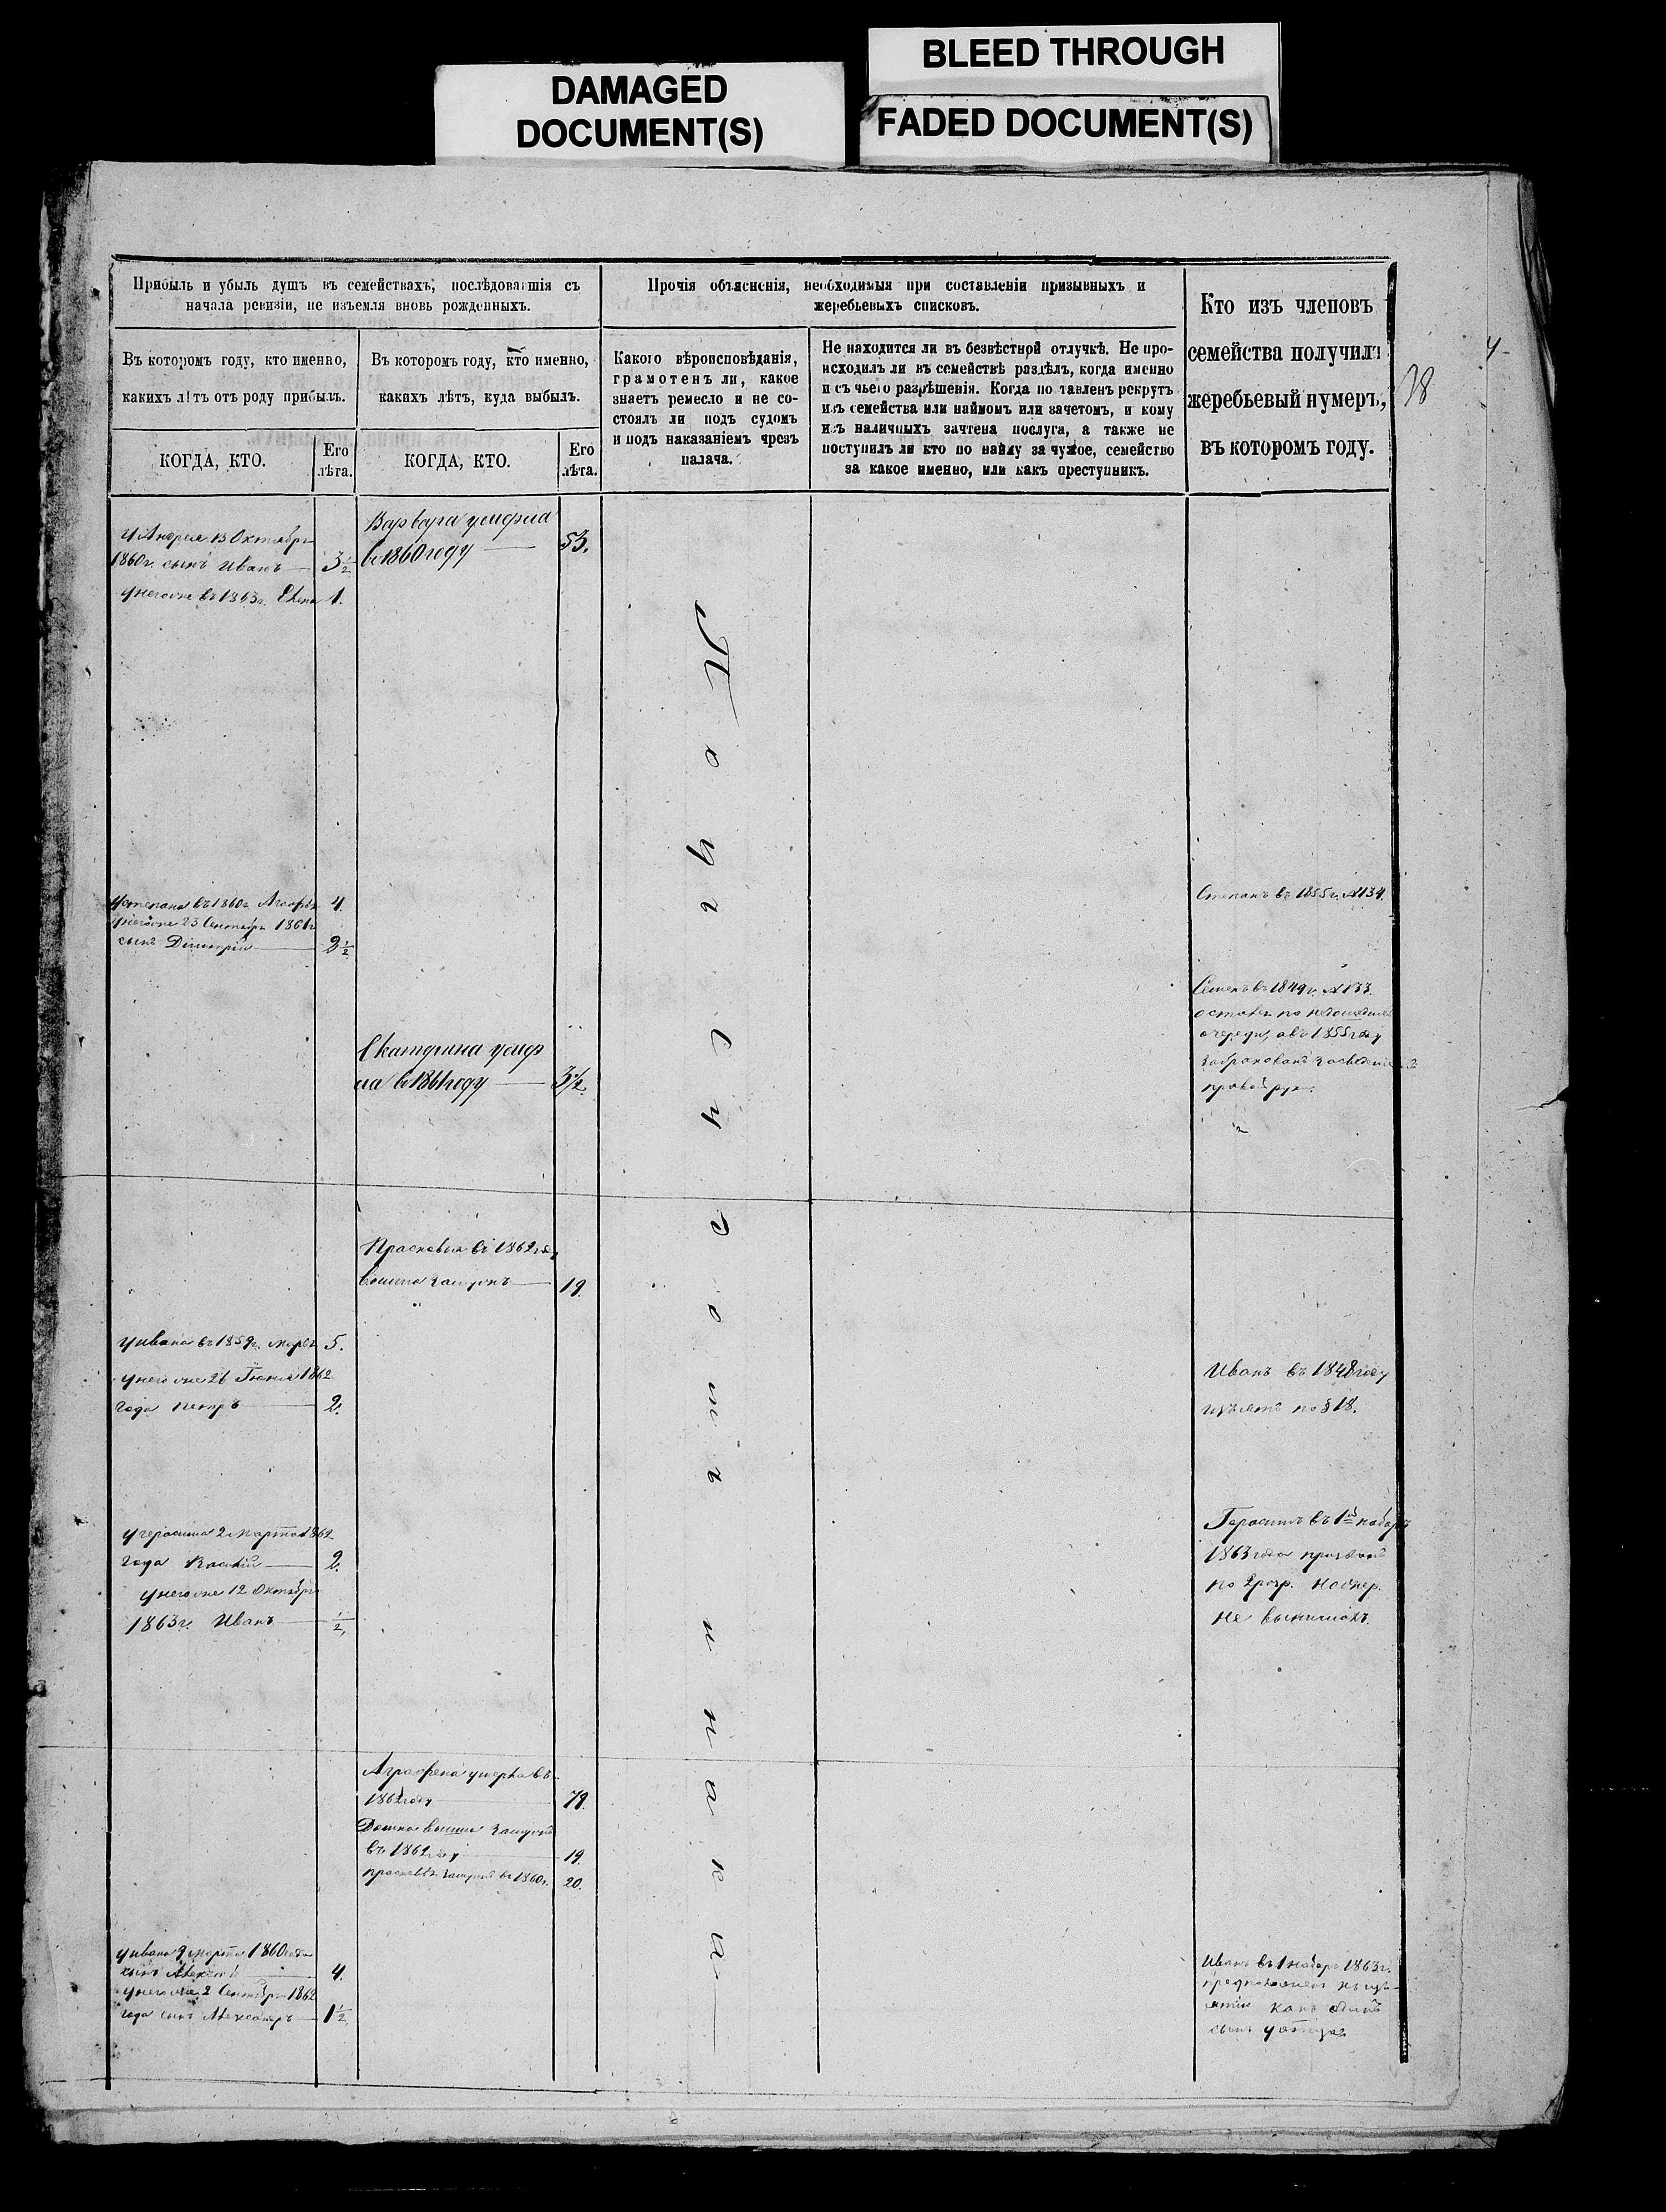 DAMAGED
DOCUMENT(S)
BLEED THROUGH
FADED DOCUMENT(S)
Прибыль и убыль душъ въ семействахъ, послѣдовавшія съ
начала ревизіи, не изъемля вновь рожденныхъ.
Въ которомъ году, кто именно,
какихъ лѣтъ отъ роду прибылъ.
КОГДА, КТО.
Его
лѣта.
Въ которомъ году, кто именно,
какихъ лѣтъ, куда выбылъ.
КОГДА, КТО.
Его
лѣта.
Прочія объясненія, необходимыя при составленіи призывныхъ и
жеребьевыхъ списковъ.
Какого вѣроисповѣданія,
грамотенъ ли, какое
знаетъ ремесло и не со-
стоялъ ли подъ судомъ
и подъ наказаніемъ чрезъ
палача.
Не находится ли въ безвѣстной отлучкѣ. Не про-
исходилъ ли въ семействѣ раздѣлъ, когда именно
и съ чьего разрѣшенія. Когда поставленъ рекрутъ
изъ семейства или наймомъ или зачетомъ, и кому
изъ наличныхъ зачтена послуга, а также не
поступилъ ли кто по найму за чужое, семейство
за какое именно, или какъ преступникъ.
Кто изъ членовъ
семейства получилъ
жеребьевый нумеръ,
въ которомъ году.
38
у Андрея 13 Октября
1860г. сынъ Иванъ 3½
у него же въ 1863г. Елена 1.
Варвара умерла
въ 1860 году 53.
у Степана въ 1860г. 4.
у него же 23 Сентября 1861г
сынъ Димитрій 2½
Степанъ въ 1855г. №134.
Семенъ въ 1849г. №133.
очереди, а въ 1855 году
Екатерина умер
ла въ 1861 году 3½.
Прасковья въ 1862 году
вышла замужъ 19.
у Ивана въ 1859г. 5.
у него же 26 Іюня 1862
года Петръ 2.
Иванъ въ 1848 году
изъятъ по §18.
у Герасима 2 Марта 1862
года Василій 2.
у него же 12 Октября
1863г. Иванъ ½.
Герасимъ въ 1й наборъ
1863 года призванъ
по 2 розр. но жер.
не вынималъ.
Аграфена умерла въ
1862 году 79.
Домна вышла замужъ
въ 1862 году 19.
замужъ въ 1860г. 20.
у Ивана 9 Марта 1860 года
сынъ Алексѣй 4.
у него же 2 Сентября 1862
года сынъ Александръ 1½
Иванъ въ 1 наборъ 1863г.
какъ одинъ
сынъ у отца